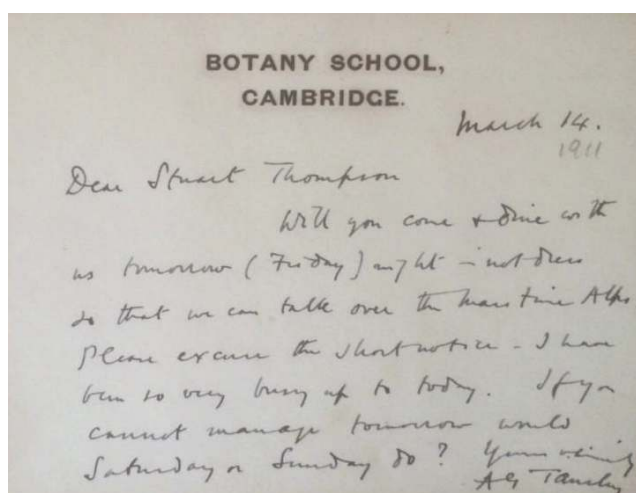 BOTANY SCHOOL,
CAMBRIDGE.
March 14.
1911
Dear Stuart Thompson
Will you come & dine with
us tomorrow (Friday) night – not dress
so that we can talk over the Maritime Alps
Please excuse the short notice – I have
been so very busy up to today. If you
cannot manage tomorrow would
Saturday or Sunday do? Yours
AG Tansley